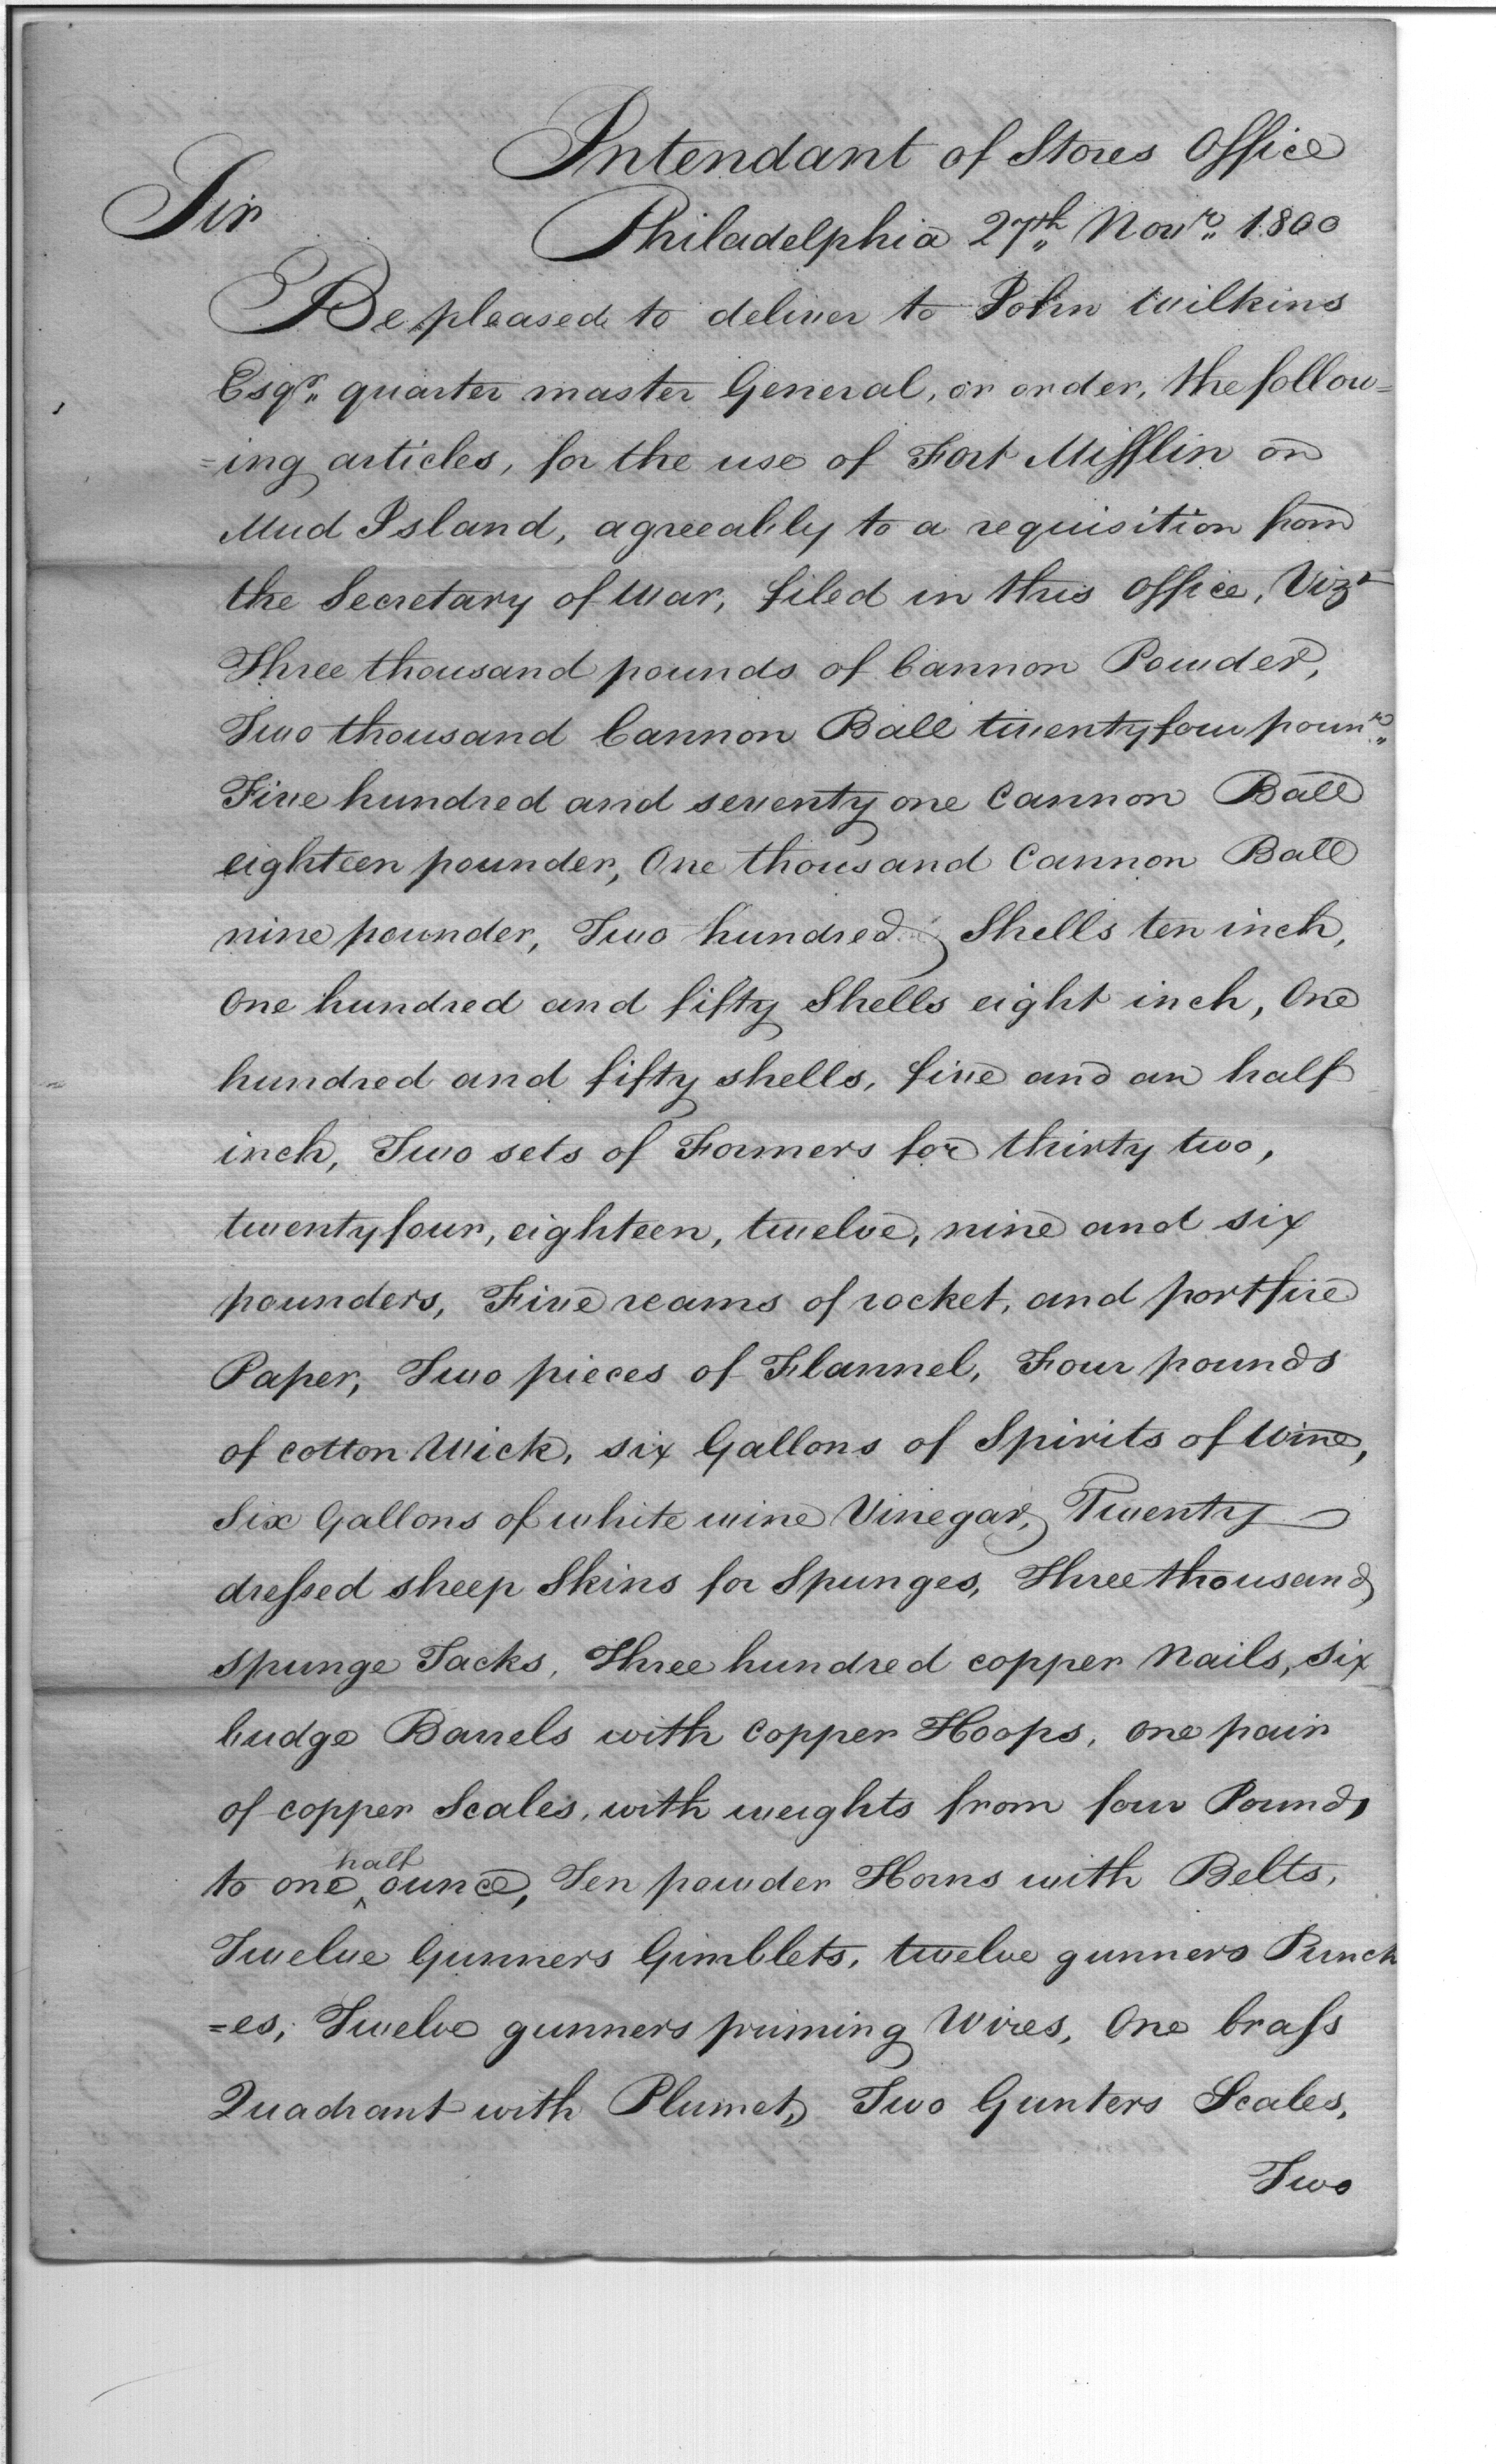 Intendant of Stores Office
Sir
Philadelphia 27th Novr 1800
Be pleased to deliver to John Wilkins
Esqr. quarter master General, or order, the follow=
=ing articles, for the use of Fort Mifflin on
Mud Island, agreeably to a requisition from
the Secretary of War, filed in this Office, Vizt
Three thousand pounds of Cannon Powder,
Two thousand Cannon Ball twenty four pounr.
Five hundred and seventy one Cannon Ball
eighteen pounder, One thousand Cannon Ball
nine pounder, Two hundred Shells ten inch,
One hundred and fifty Shells eight inch, One
hundred and fifty shells, five and an half
inch, Two sets of Formers for thirty two,
twenty four, eighteen, twelve, nine and six
pounders, Five reams of rocket, and portfire
Paper, Two pieces of Flannel, Four pounds
of cotton Wick, six Gallons of Spirits of Wine,
Six Gallons of white wine Vinegar, Twenty
dressed sheep Skins for Spunges, Three thousand
spunge Tacks, Three hundred copper Nails, six
budge Barrels with Copper Hoops, one pair
of copper Scales, with weights from four Pounds
to one half ounce, Ten powder Horns with Belts,
Twelve Gunners Gimblets, twelve gunners Punch
=es, Twelve gunners priming Wires, One brass
Quadrant with Plumet, Two Gunters Scales,
Two